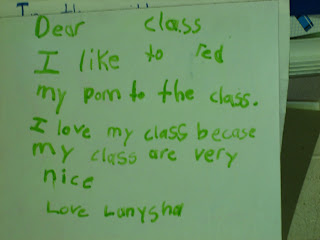 Dear class
I like to red
my pom to the class.
I love my class becase
my class are very
nice
Love Lanysha